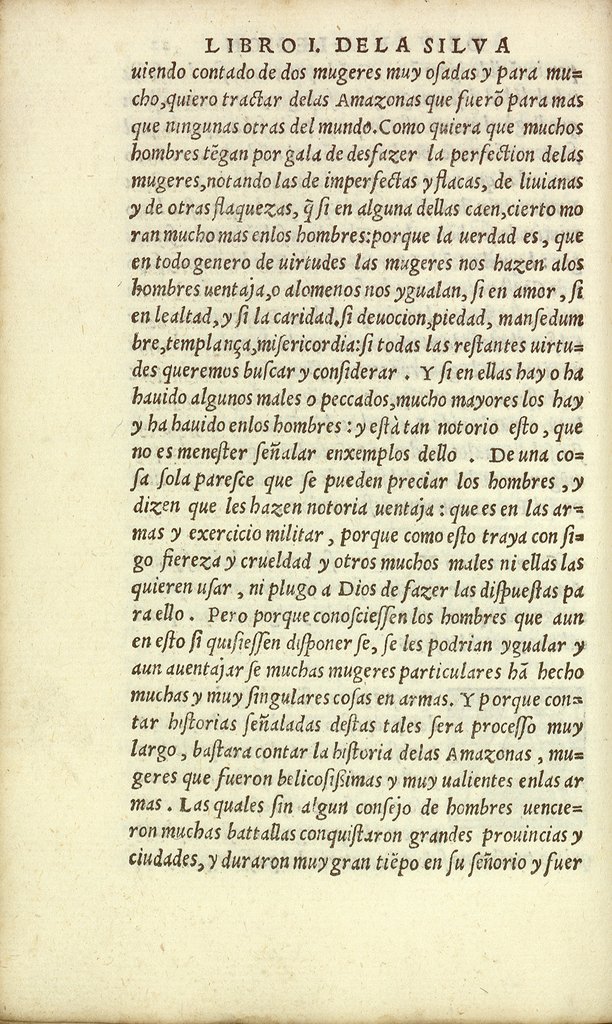 LIBRO I. DELA SILVA
uiendo contado de dos mugeres muy oſadas y para mu=
cho,quiero tractar delas Amazonas que fuerõ para mas
que ningunas otras del mundo.Como quiera que muchos
hombres tẽgan por gala de desfazer la perfection delas
mugeres,notando las de imperfectas y flacas, de liuianas
y de otras flaquezas, q̃ ſi en alguna dellas caen,cierto mo
ran mucho mas enlos hombres:porque la uerdad es, que
en todo genero de uirtudes las mugeres nos hazen alos
hombres uentaja,o alomenos nos ygualan, ſi en amor, ſi
en lealtad, y ſi la caridad,ſi deuocion,piedad, manſedum
bre,templança,miſericordia:ſi todas las reſtantes uirtu=
des queremos buſcar y conſiderar . Y ſi en ellas hay o ha
hauido algunos males o peccados,mucho mayores los hay
y ha hauido enlos hombres : y eſtà tan notorio eſto , que
no es meneſter ſeñalar enxemplos dello . De una co=
ſa ſola pareſce que ſe pueden preciar los hombres , y
dizen que les hazen notoria uentaja : que es en las ar=
mas y exercicio militar , porque como eſto traya con ſi=
go fiereza y crueldad y otros muchos males ni ellas las
quieren uſar , ni plugo a Dios de fazer las diſpueſtas pa
ra ello . Pero porque conoſcieſſen los hombres que aun
en eſto ſi quiſieſſen diſponer ſe, ſe les podrian ygualar y
aun auentajar ſe muchas mugeres particulares hã hecho
muchas y muy ſingulares coſas en armas. Y porque con=
tar hiſtorias ſeñaladas deſtas tales ſera proceſſo muy
largo , baſtara contar la hiſtoria delas Amazonas , mu=
geres que fueron belicoſißimas y muy ualientes enlas ar
mas . Las quales ſin algun conſejo de hombres uencie=
ron muchas battallas conquiſtaron grandes prouincias y
ciudades, y duraron muy gran tiẽpo en ſu ſeñorio y fuer